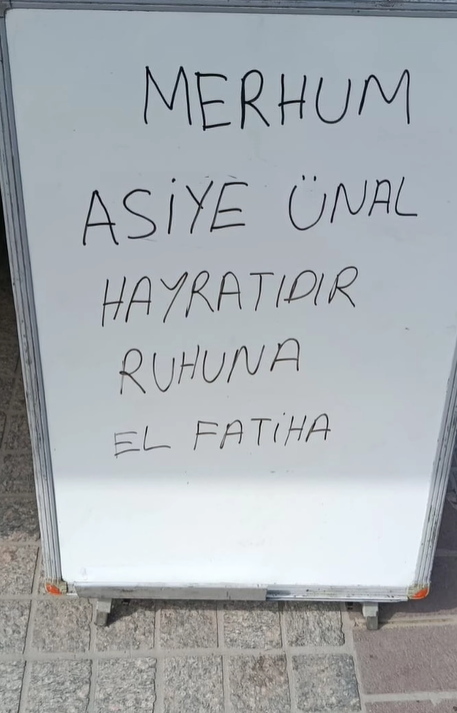 MERHUM
ASİYE ÜNAL
HAYRATIDIR
RUHUNA
EL FATİHA